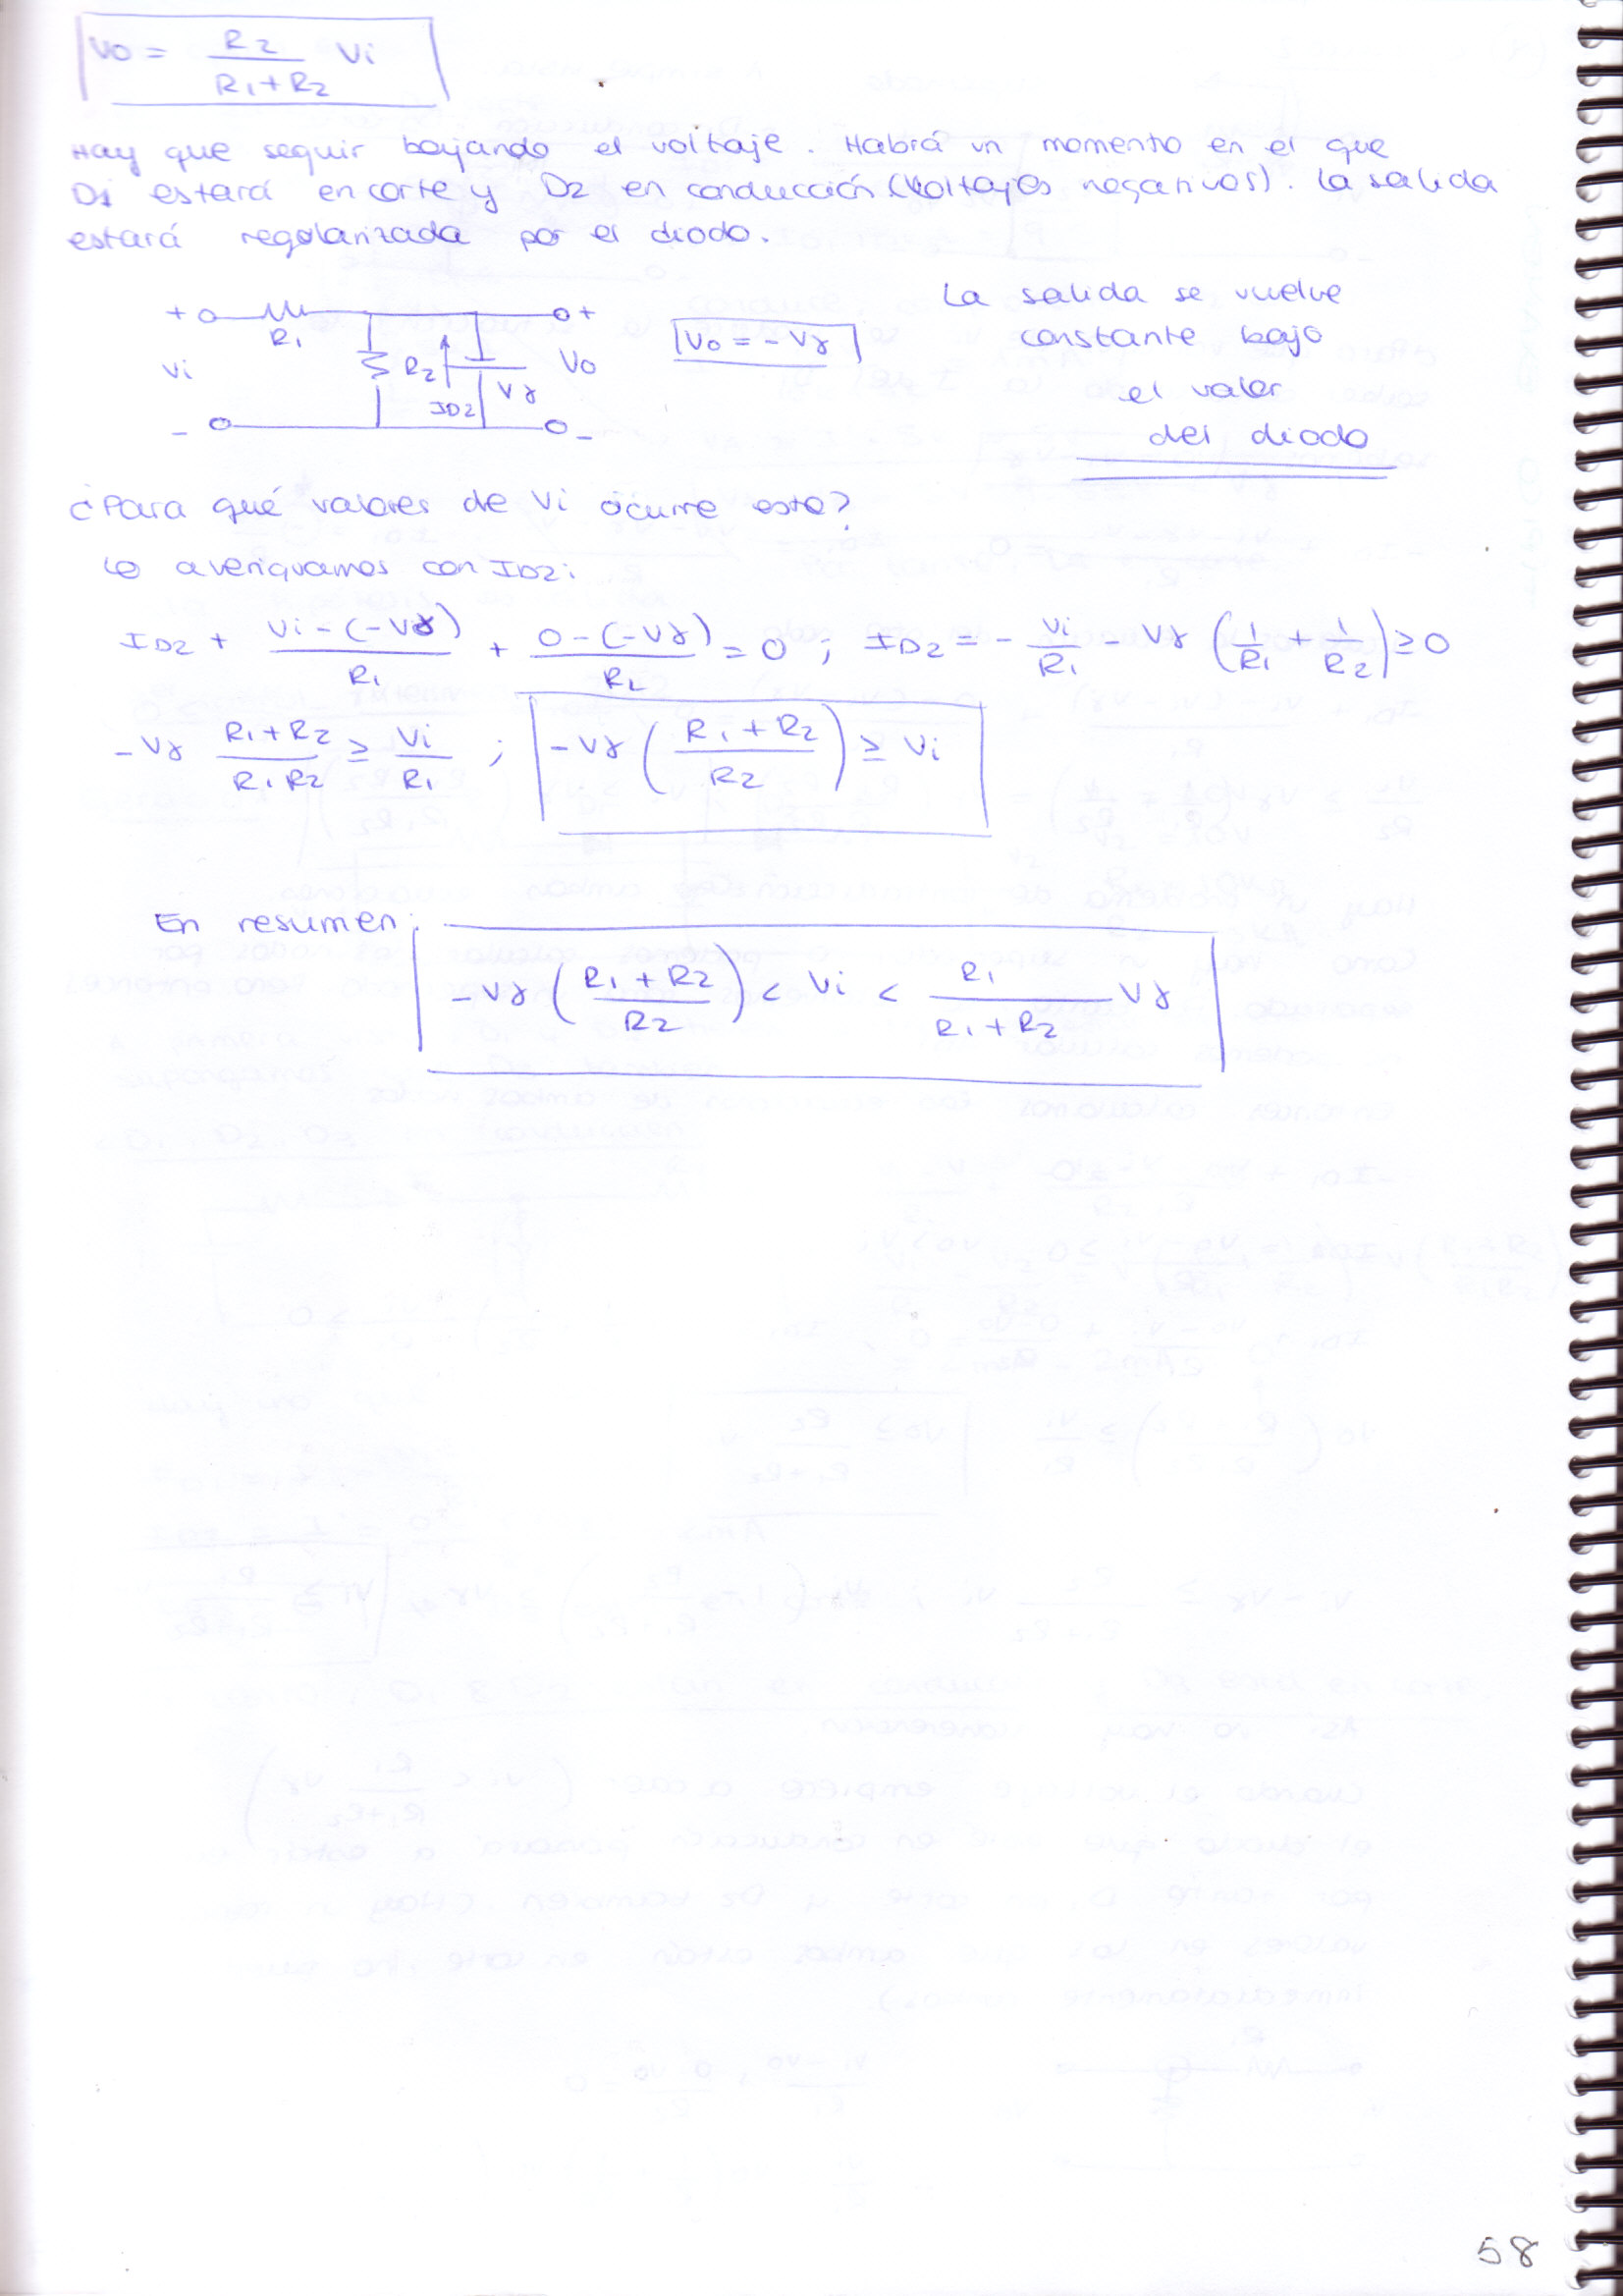 Vo = R2 / (R1+R2) Vi
Hay que seguir bajando el voltaje. Habrá un momento en el que
D1 estará en corte y D2 en conducción (Voltajes negativos). La salida
estará regularizada por el diodo.
La salida se vuelve
constante bajo
el valor
del diodo
+ R1 +
Vi R2 ID2 Vγ Vo
- -
Vo = -Vγ
¿Para qué valores de Vi ocurre esto?
Lo averiguamos con ID2:
ID2 + (Vi - (-Vγ)) / R1 + (0 - (-Vγ)) / R2 = 0 ; ID2 = - Vi/R1 - Vγ (1/R1 + 1/R2) ≥ 0
-Vγ (R1+R2) / (R1 R2) ≥ Vi/R1 ; -Vγ ((R1+R2) / R2) ≥ Vi
En resumen:
-Vγ ((R1+R2) / R2) < Vi < R1 / (R1+R2) Vγ
58